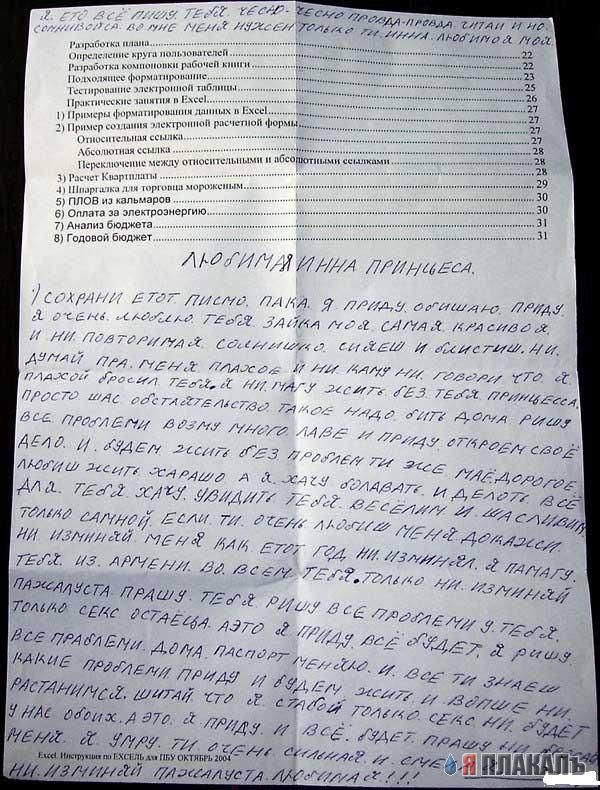 Я. ЕТО ВСЁ ПИШУ. ТЕБЯ. ЧЕСНО-ЧЕСНО ПРОВДА-ПРОВДА. ЧИТАЙ И НО
СОМНИВОЙСА. ВО МНЕ МЕНЯ НУЖЕН ТОЛЬКО ТИ. ИННА. ЛЮБИМОЯ МОЯ
Разработка плана
Определение круга пользователей 22
Разработка компоновки рабочей книги 22
Подходящее форматирование 23
Тестирование электронной таблицы 25
Практические занятия в Excel 26
1) Примеры форматирования данных в Excel 27
2) Пример создания электронной расчетной формы 27
Относительная ссылка 27
Абсолютная ссылка 28
Переключение между относительными и абсолютными ссылками 28
3) Расчет Квартплаты 28
4) Шпаргалка для торговца мороженым 29
5) ПЛОВ из кальмаров 30
6) Оплата за электроэнергию 30
7) Анализ бюджета 31
8) Годовой бюджет 31
ЛЮБИМАЯ ИННА ПРИНЦЕСА.
1) СОХРАНИ ЕТОТ. ПИСМО. ПАКА. Я. ПРИДУ. ОБИШАЮ. ПРИДУ.
Я ОЧЕНЬ. ЛЮБЛЮ. ТЕБЯ. ЗАЙКА МОЯ. САМАЯ КРАСИВОЯ.
И НИ. ПОВТОРИМАЯ. СОЛНИШКО. СИЯЕШ И БЛИСТИШ. НИ.
ДУМАЙ ПРА. МЕНЯ. ПЛАХОЕ И НИ. КАМУ НИ. ГОВОРИ ЧТО Я.
ПЛАХОЙ БРОСИЛ ТЕБЯ. Я НИ. МАГУ ЖИТЬ БЕЗ. ТЕБЯ ПРИНЦЕССА.
ПРОСТО ШАС ОБСТЛЯТЕЛЬСТВО. ТАКОЕ НАДО. БИТЬ ДОМА РИШУ
ВСЕ ПРОБЛЕМИ ВОЗМУ МНОГО ЛАВЕ И ПРИДУ. ОТКРОЕМ СВОЁ
ДЕЛО. И. БУДЕМ ЖИТЬ БЕЗ ПРОБЛЕМ ТИ ЖЕ МАЁ ДОРОГОЕ
ЛЮБИШ ЖИТЬ ХАРАШО. А Я. ХАЧУ БОЛАВАТЬ. И ДЕЛОТЬ. ВСЁ
ДЛЯ. ТЕБЯ. ХАЧУ. УВИДИТЬ ТЕБЯ. ВЕСЁЛИМ. И ШАСЛИВИМ
ТОЛЬКО САМНОЙ. ЕСЛИ. ТИ. ОЧЕНЬ ЛЮБИШ МЕНЯ. ДОКАЖИ.
НИ. ИЗМИНЯЙ МЕНЯ КАК ЕТОТ. ГОД. НИ. ИЗМИНЯЛ. Я ПАМАГУ.
ТЕБЯ. ИЗ. АРМЕНИ. ВО. ВСЕМ. ТЕБЯ. ТОЛЬКО НИ. ИЗМИНЯЙ
ПАЖАЛУСТА. ПРАШУ. ТЕБЯ. РИШУ ВСЕ ПРОБЛЕМИ У. ТЕБЯ.
ТОЛЬКО СЕКС ОСТАЁСЬВА. АЭТО Я ПРИДУ. ВСЁ БУДЕТ. Я РИШУ.
ВСЕ ПРАБЛЕМИ. ДОМА. ПАСПОРТ МЕНЯЮ. И. ВСЕ ТИ ЗНАЕШ
КАКИЕ ПРОБЛЕМИ. ПРИДУ И БУДЕМ. ЖИТЬ. И ВОПШЕ НИ.
РАСТАНИМСЯ. ШИТАЙ. ЧТО Я. СТАБОЙ ТОЛЬКО. СЕКС НИ. БУДЕТ
У НАС ОБОИХ. А ЭТО. Я. ПРИДУ. И ВСЁ. БУДЕТ. ПРАШУ НИ
МЕНЯ. Я. УМРУ. ТИ. ОЧЕНЬ СИЛЬНАЯ И
Excel. Инструкция по ЕХСЕЛЬ для ПБУ ОКТЯБРЬ 2004
НИ. ИЗМИНЯЙ ПАЖАЛУСТА. ЛЮБИМАЯ!!!
Я ПЛАКАЛЪ